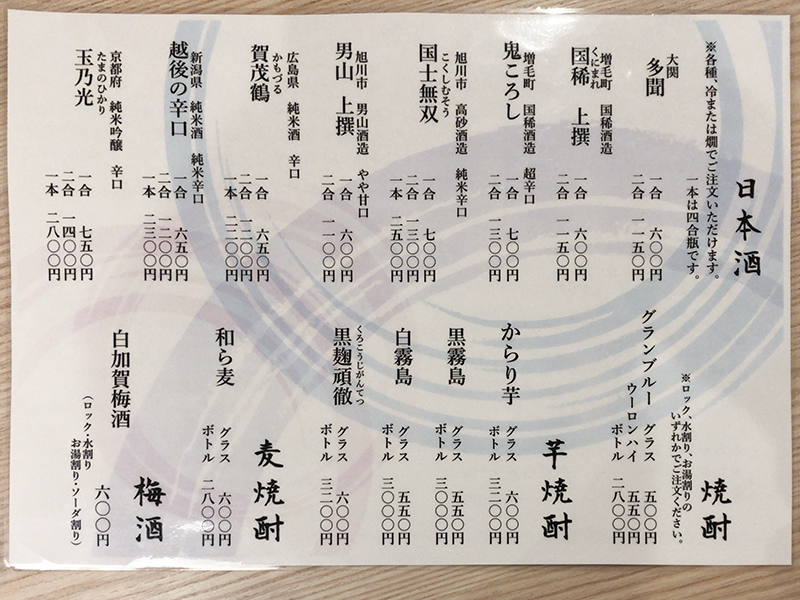 日本酒
※各種、冷または燗でご注文いただけます。
一本は四合瓶です。
大関
多聞
一合 六〇〇円
二合 一一五〇円
増毛町 国稀酒造
くにまれ
国稀 上撰
一合 六〇〇円
二合 一一五〇円
増毛町 国稀酒造 超辛口
鬼ころし
一合 七〇〇円
二合 一三〇〇円
旭川市 高砂酒造 純米辛口
こくしむそう
国士無双
一合 七〇〇円
二合 一三〇〇円
一本 二五〇〇円
旭川市 男山酒造 やや甘口
男山 上撰
一合 六〇〇円
二合 一一〇〇円
広島県 純米酒 辛口
かもづる
賀茂鶴
一合 六五〇円
二合 一二〇〇円
一本 二二〇〇円
新潟県 純米酒 純米辛口
越後の辛口
一合 六五〇円
二合 一二〇〇円
一本 二三〇〇円
京都府 純米吟醸 辛口
たまのひかり
玉乃光
一合 七五〇円
二合 一四〇〇円
一本 二八〇〇円
焼酎
※ロック、水割り、お湯割りの
いずれかでご注文ください。
グランブルー グラス 五〇〇円
ウーロンハイ 五五〇円
ボトル 二八〇〇円
芋焼酎
からり芋
グラス 六〇〇円
ボトル 三二〇〇円
黒霧島
グラス 五五〇円
ボトル 三〇〇〇円
白霧島
グラス 五五〇円
ボトル 三〇〇〇円
くろこうじがんてつ
黒麹頑徹
グラス 六〇〇円
ボトル 三二〇〇円
麦焼酎
和ら麦
グラス 六〇〇円
ボトル 二八〇〇円
梅酒
白加賀梅酒
六〇〇円
（ロック・水割り
お湯割り・ソーダ割り）